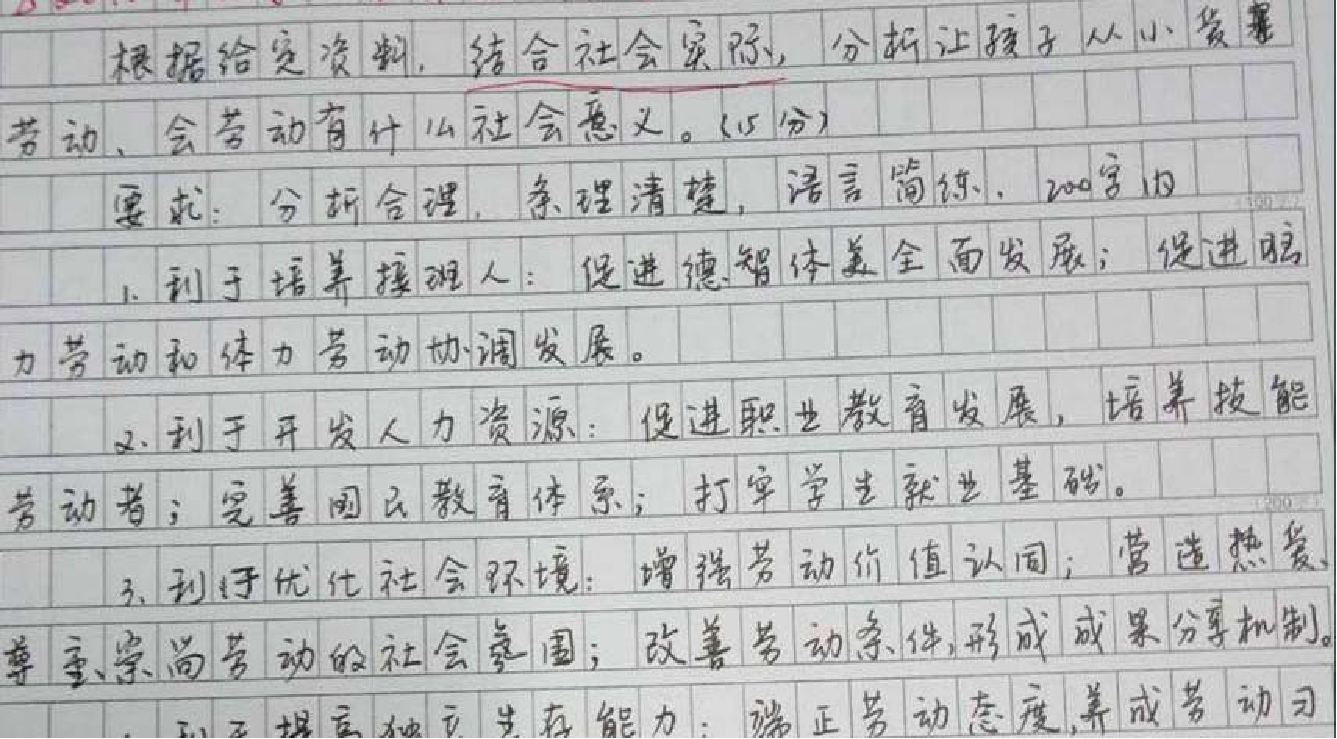 根据给定资料,结合社会实际,分析让孩子从小爱
劳动、会劳动有什么社会意义。(15分)
要求:分析合理,条理清楚,语言简练,200字内
1.利于培养接班人:促进德智体美全面发展;促进脑
力劳动和体力劳动协调发展。
2.利于开发人力资源:促进职业教育发展,培养技能
劳动者;完善国民教育体系;打牢学生就业基础。
3.利于优化社会环境:增强劳动价值认同;营造热爱、
尊重、崇尚劳动的社会氛围;改善劳动条件,形成成果分享机制。
利于提高独立生存能力:端正劳动态度,养成劳动习